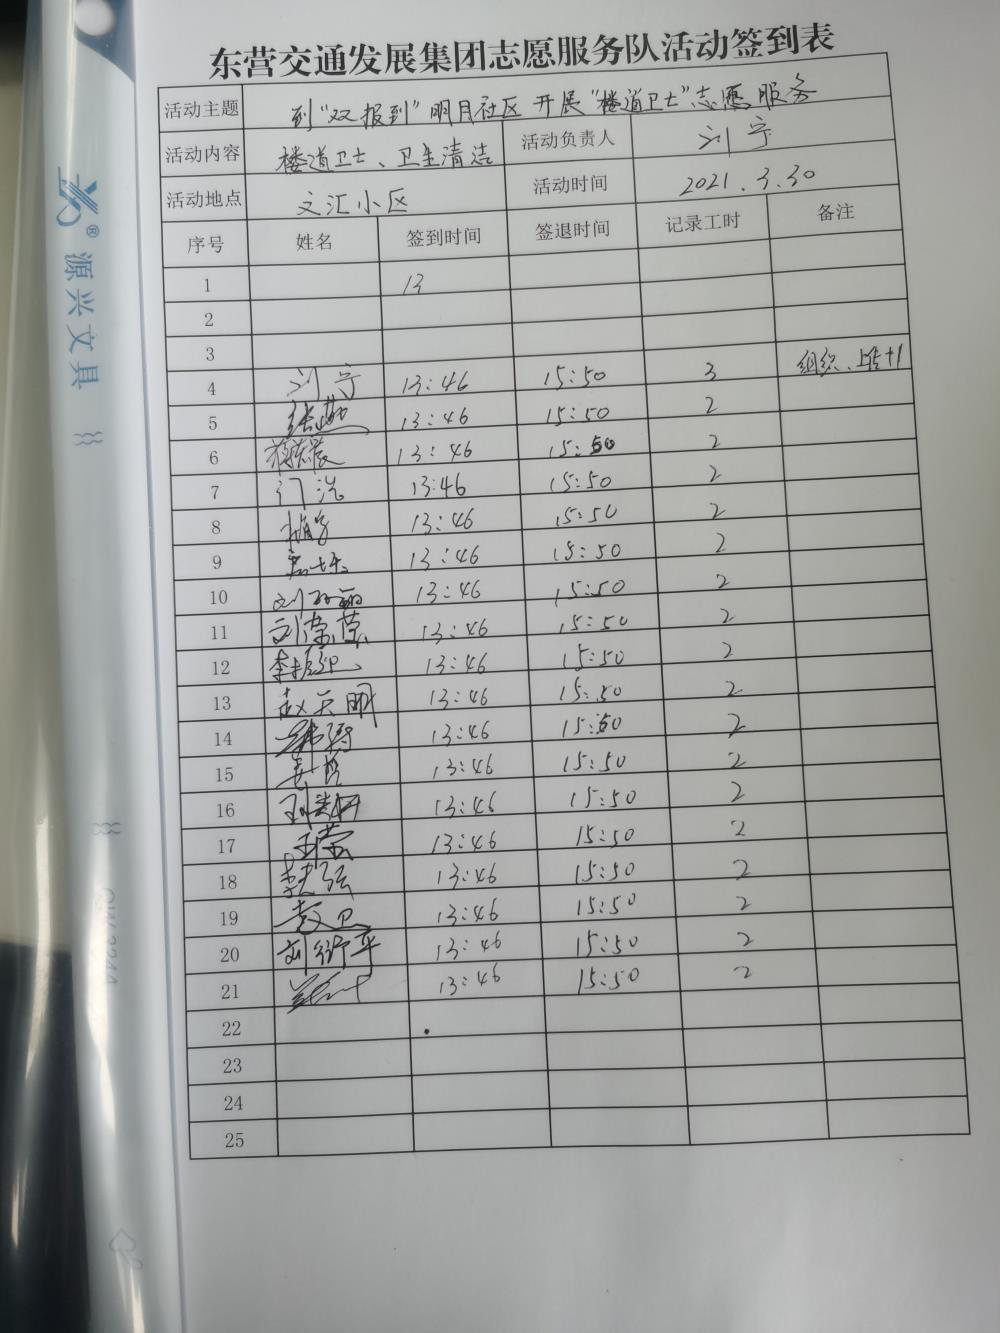 东营交通发展集团志愿服务队活动签到表
活动主题 到"双报到"明月社区开展"楼道卫士"志愿服务
活动内容 楼道卫士、卫生清洁 活动负责人 刘宁
活动地点 文汇小区 活动时间 2021.3.30
序号 姓名 签到时间 签退时间 记录工时 备注
1 13
2
3
4 刘宁 13:46 15:50 3 组织、上传+1
5 13:46 15:50 2
6 13:46 15:50 2
7 门洗 13:46 15:50 2
8 13:46 15:50 2
9 13:46 15:50 2
10 13:46 15:50 2
11 刘荣荣 13:46 15:50 2
12 13:46 15:50 2
13 赵天明 13:46 15:50 2
14 13:46 15:50 2
15 13:46 15:50 2
16 13:46 15:50 2
17 王荣 13:46 15:50 2
18 13:46 15:50 2
19 13:46 15:50 2
20 13:46 15:50 2
21 13:46 15:50 2
22
23
24
25
®
源兴文具